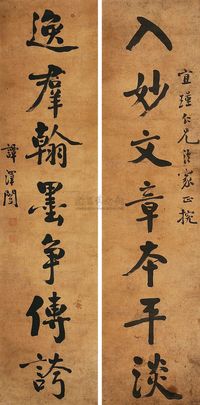 宜瑾仁兄法家正捥
入妙文章本平淡
逸羣翰墨争傳誇
譚澤闓